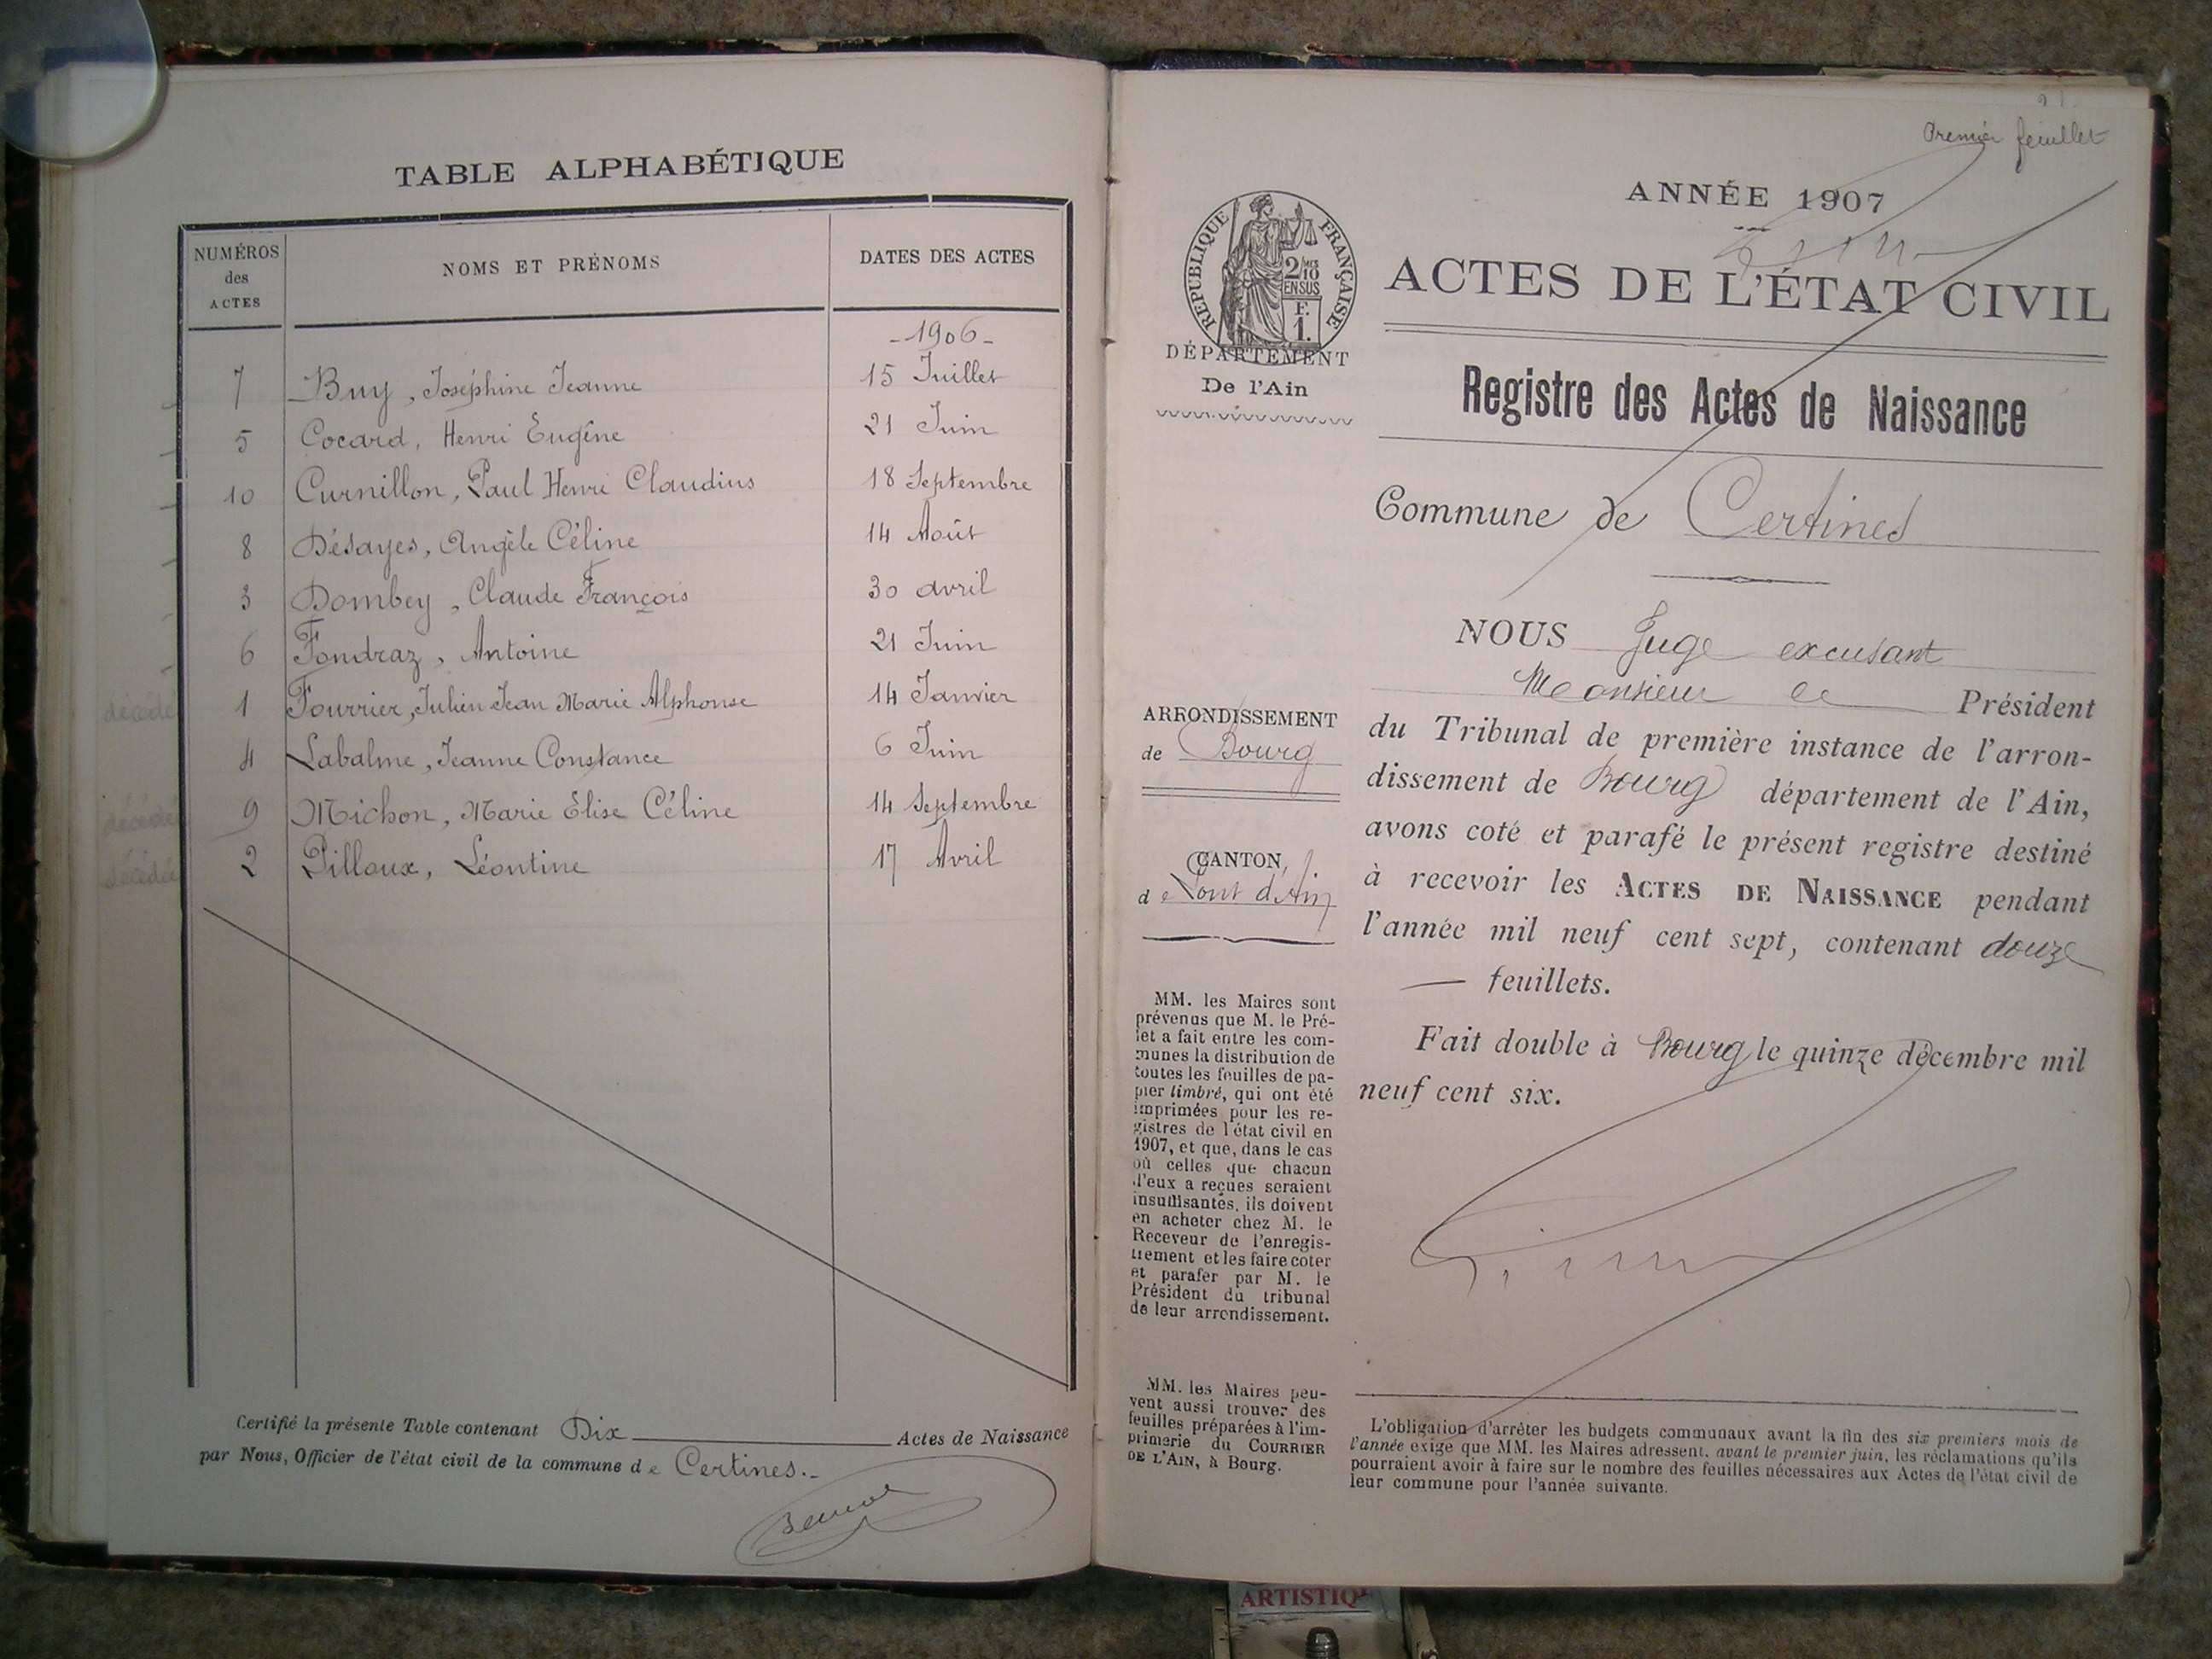 TABLE ALPHABÉTIQUE
NUMÉROS des ACTES
NOMS ET PRÉNOMS
DATES DES ACTES
- 1906 -
7 Buy, Joséphine Jeanne 15 Juillet
5 Cocard, Henri Eugène 21 Juin
10 Curnillon, Paul Henri Claudius 18 Septembre
8 Désayes, Angèle Céline 14 Août
3 Dombey, Claude François 30 avril
6 Fondraz, Antoine 21 Juin
décédé 1 Fourrier, Julien Jean Marie Alphonse 14 Janvier
4 Labalme, Jeanne Constance 6 Juin
décédée 9 Michon, Marie Elise Céline 14 Septembre
décédée 2 Pilloux, Léontine 17 Avril
Certifié la présente Table contenant Dix Actes de Naissance
par Nous, Officier de l'état civil de la commune de Certines.
Premier feuillet
ANNÉE 1907
RÉPUBLIQUE FRANÇAISE
2/10 MES
EN SUS
F.
1.
ACTES DE L'ÉTAT CIVIL
DÉPARTEMENT
De l'Ain
Registre des Actes de Naissance
Commune de Certines
NOUS Juge excusant
Monsieur le Président
du Tribunal de première instance de l'arron-
dissement de Bourg département de l'Ain,
avons coté et parafé le présent registre destiné
à recevoir les ACTES DE NAISSANCE pendant
l'année mil neuf cent sept, contenant douze
feuillets.
Fait double à Bourg le quinze décembre mil
neuf cent six.
ARRONDISSEMENT
de Bourg
CANTON
de Pont d'Ain
MM. les Maires sont
prévenus que M. le Pré-
fet a fait entre les com-
munes la distribution de
toutes les feuilles de pa-
pier timbré, qui ont été
imprimées pour les re-
gistres de l'état civil en
1907, et que, dans le cas
où celles que chacun
d'eux a reçues seraient
insuffisantes, ils doivent
en acheter chez M. le
Receveur de l'enregis-
trement et les faire coter
et parafer par M. le
Président du tribunal
de leur arrondissement.
MM. les Maires peu-
vent aussi trouver des
feuilles préparées à l'im-
primerie du COURRIER
DE L'AIN, à Bourg.
L'obligation d'arrêter les budgets communaux avant la fin des six premiers mois de
l'année exige que MM. les Maires adressent, avant le premier juin, les réclamations qu'ils
pourraient avoir à faire sur le nombre des feuilles nécessaires aux Actes de l'état civil de
leur commune pour l'année suivante.
ARTISTIQ